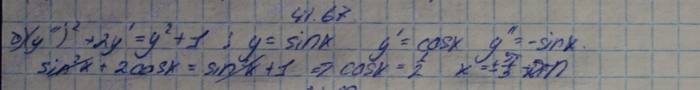 41.67
б) (y'')² + 2y' = y² + 1 ; y = sinx y' = cosx y'' = -sinx.
sin²x + 2cosx = sin²x + 1 => cosx = 1/2 x = ±π/3 + 2πn